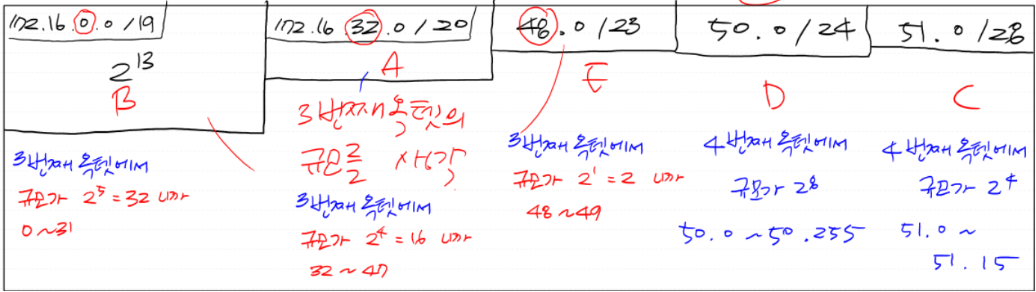 172.16.0.0/19
2^13
B
3번째 옥텟에서
규모가 2^5 = 32 니까
0~31
172.16.32.0/20
A
3번째 옥텟의
규모를 생각
3번째 옥텟에서
규모가 2^4 = 16 니까
32~47
48.0/23
E
3번째 옥텟에서
규모가 2^1 = 2 니까
48~49
50.0/24
D
4번째 옥텟에서
규모가 2^8
50.0~50.255
51.0/28
C
4번째 옥텟에서
규모가 2^4
51.0~
51.15